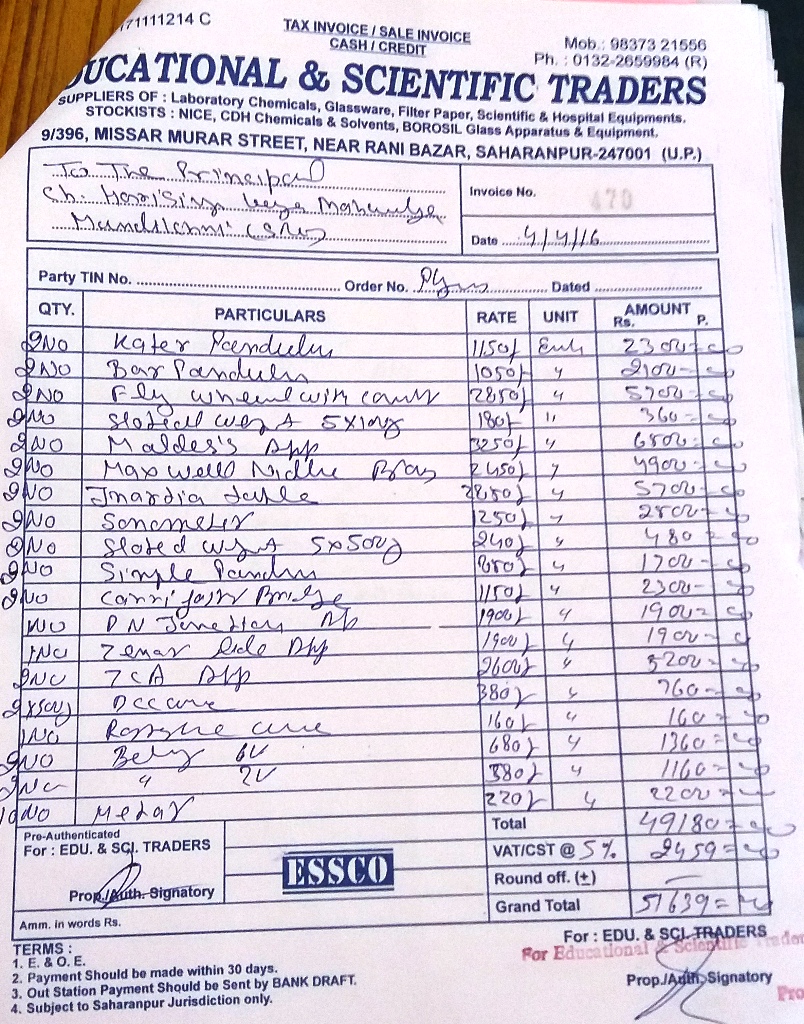 71111214 C
TAX INVOICE / SALE INVOICE
CASH / CREDIT
Mob.: 98373 21556
Ph. : 0132-2659984 (R)
UCATIONAL & SCIENTIFIC TRADERS
SUPPLIERS OF : Laboratory Chemicals, Glassware, Filter Paper, Scientific & Hospital Equipments.
STOCKISTS : NICE, CDH Chemicals & Solvents, BOROSIL Glass Apparatus & Equipment.
9/396, MISSAR MURAR STREET, NEAR RANI BAZAR, SAHARANPUR-247001 (U.P.)
To The Principal
Ch. Harisingh
Invoice No. 470
Date 4/4/16
Party TIN No. Order No. Dated
QTY. PARTICULARS RATE UNIT AMOUNT
Rs. P.
2NO Kater Pandulu 1150/ Each 2300=00
2NO Bar Pandulu 1050/ " 2100=00
2NO Fly wheel with 2850/ " 5700=00
2NO Sloted 5x10g 180/ " 360=00
2NO App 3250/ " 6500=00
2NO Maxwell 2450/ " 4900=00
2NO Inardia table 2850/ " 5700=00
2NO Sonometer 1250/ "
2NO Sloted 5x50g 240/ " 480=00
2NO Simple 850/ " 1700=00
2NO Bridge 1150/ " 2300=00
1NO PN 1900/ " 1900=00
1NO Zenar App 1900/ " 1900=00
2NO App 2600/ " 5200=00
380/ " 760=00
1NO 160/ " 160=00
2NO 6V 680/ " 1360=00
" 2V " 1160=00
10NO Metar 220/ " 2200=00
Pre-Authenticated
For : EDU. & SCI. TRADERS
Prop./Auth. Signatory
ESSCO
Total 49180=00
VAT/CST @ 5% 2459=00
Round off. (±) —
Grand Total 51639=00
Amm. in words Rs.
TERMS :
1. E. & O. E.
2. Payment Should be made within 30 days.
3. Out Station Payment Should be Sent by BANK DRAFT.
4. Subject to Saharanpur Jurisdiction only.
For : EDU. & SCI. TRADERS
For Educational & Scientific Trader
Prop./Auth. Signatory
Pro